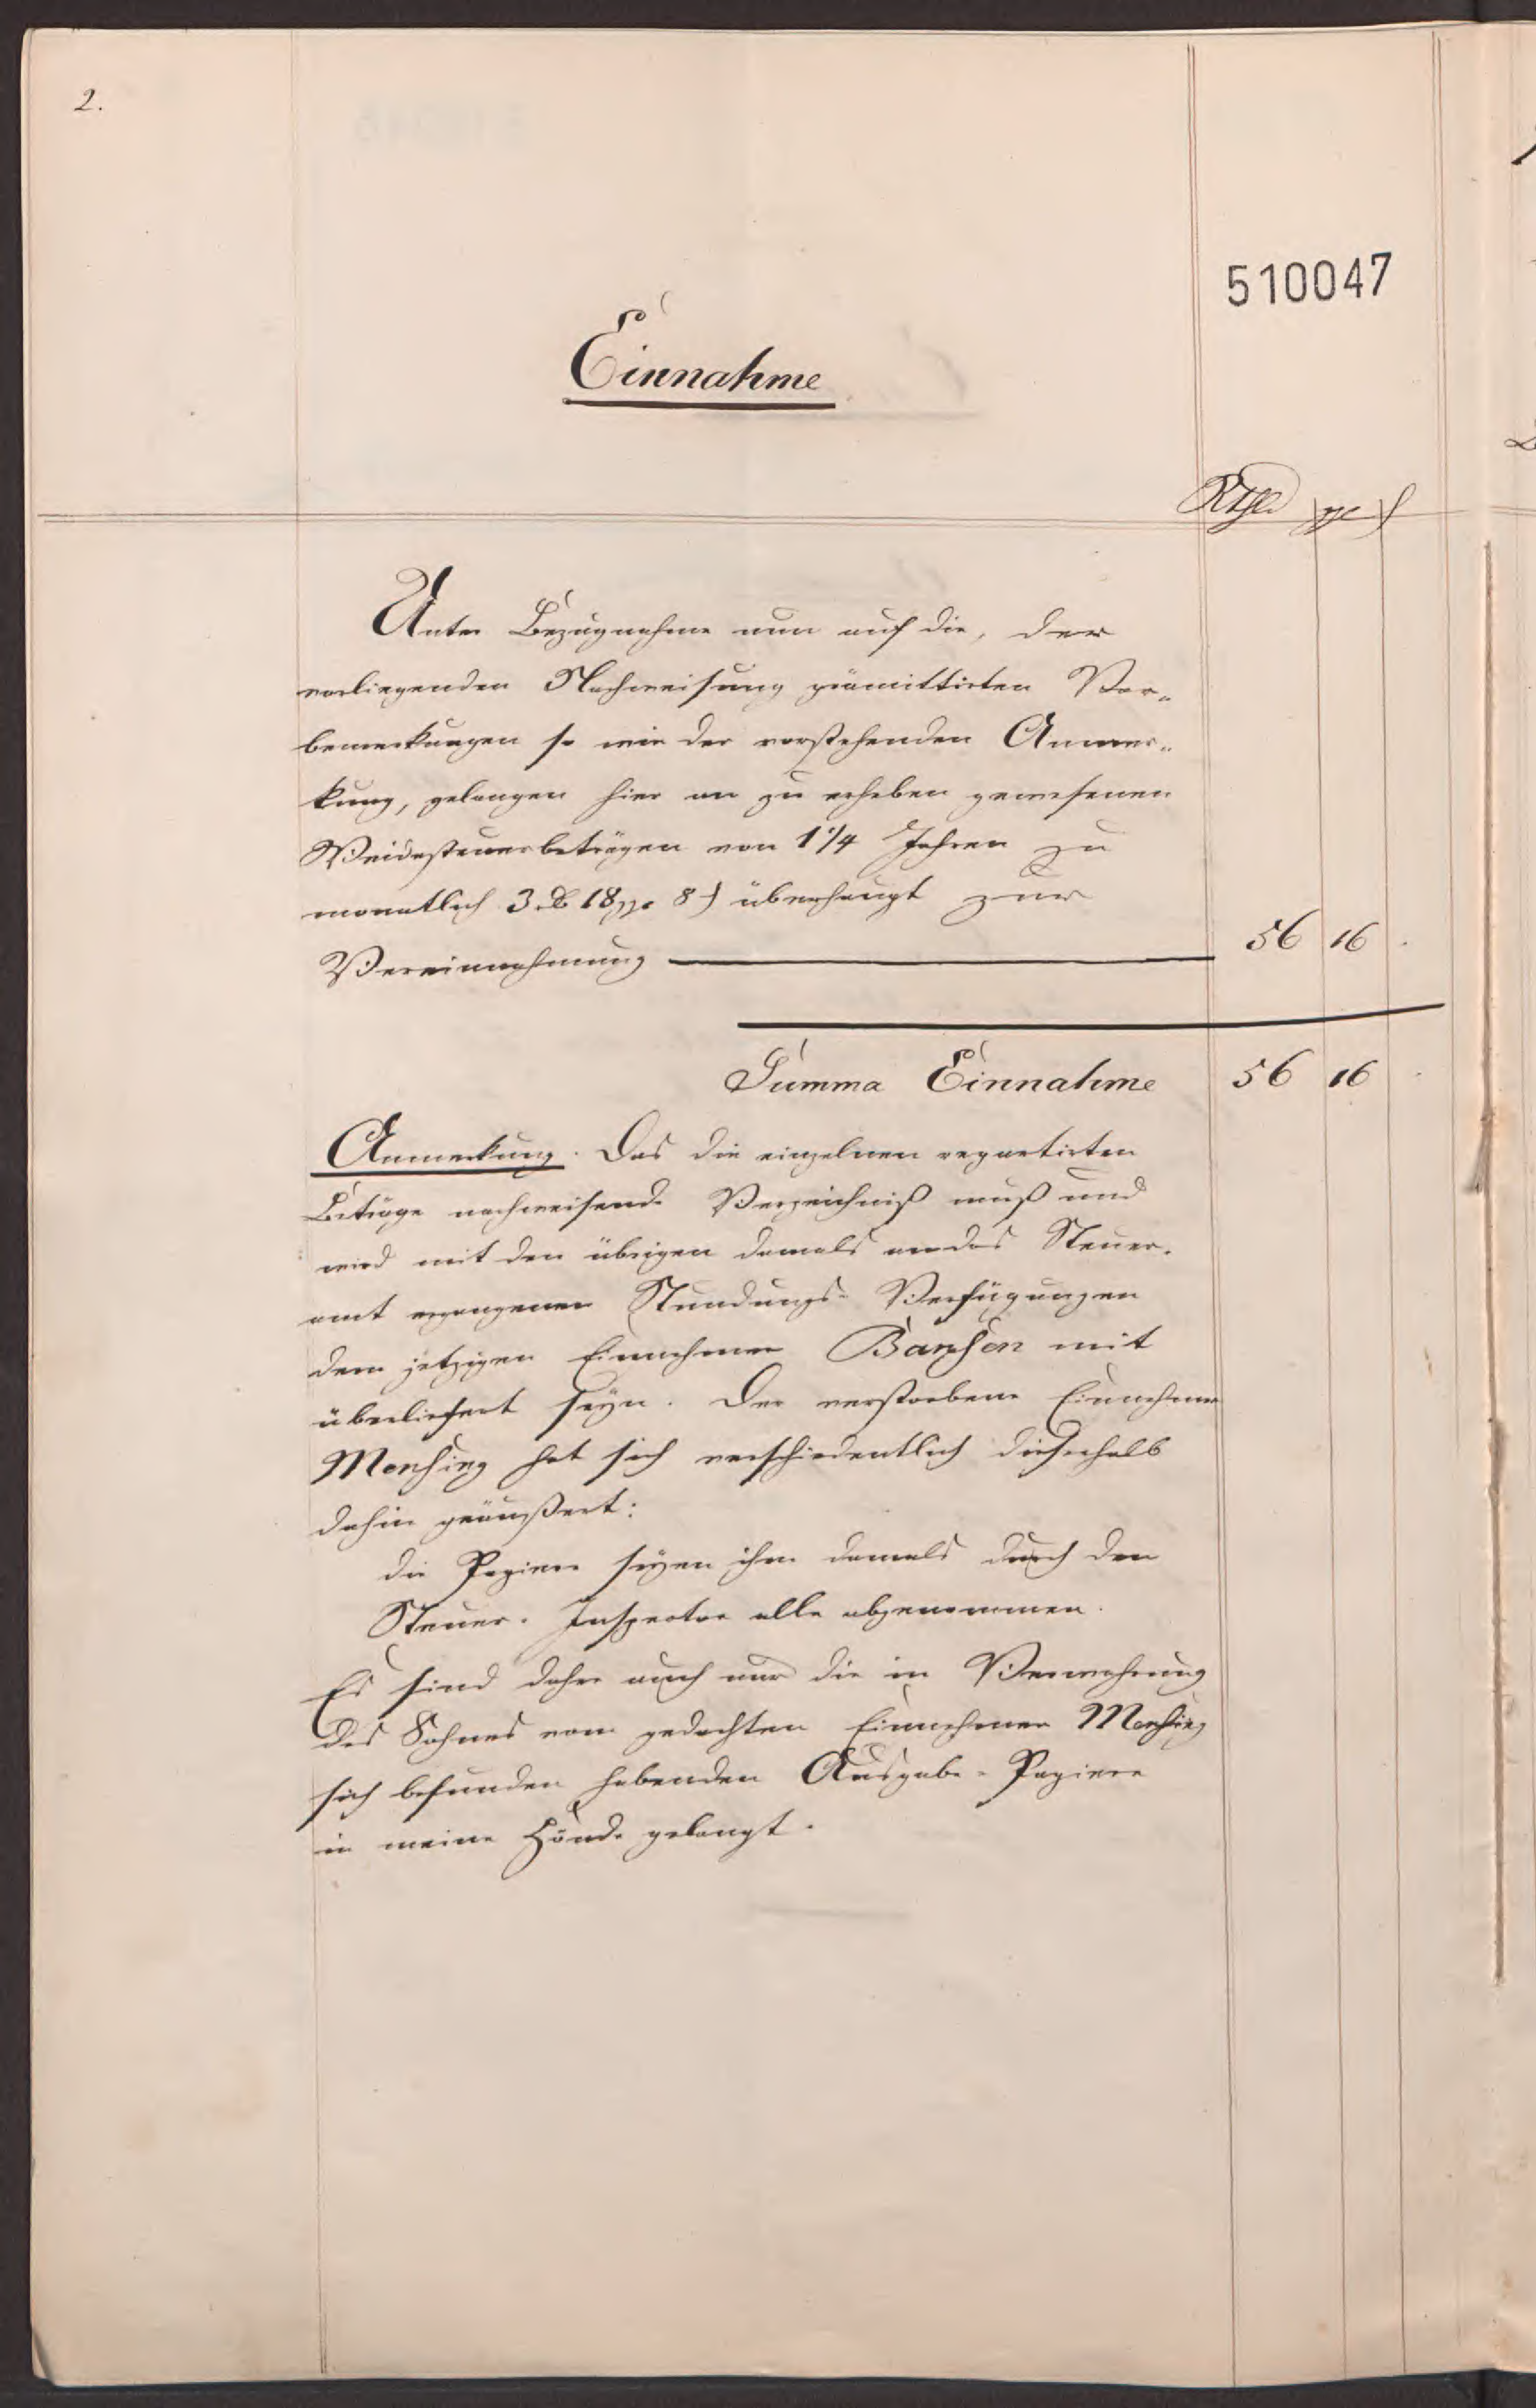 2.
510047
Einnahme
Rthl. ggr ₰
Unter Bezugnahme nun auf die, der
vorliegenden Nachweisung prämittirten Vor-
bemerkungen so wie der vorstehenden Anmer-
kung, gelangen hier an zu erheben gewesenen
Weidesteuerbeträgen von 1 1/4 Jahren zu
monatlich 3 rℓ 18 ggr 8 ₰ überhaupt zur
Vereinnahmung 56 16 .
Summa Einnahme 56 16 .
Anmerkung. Das die einzelnen repartirten
Beträge nachweisende Verzeichniß muß und
wird mit den übrigen damals an das Steuer-
amt ergangenen Stundungs-Verfügungen
dem jetzigen Einnehmer Bansen mit
überliefert seyn. Der verstorbene Einnehmer
Mensing hat sich verschiedentlich dieserhalb
dahin geäußert:
die Papiere seyen ihm damals durch den
Steuer-Inspector alle abgenommen.
Es sind daher auch nur die in Verwahrung
des Sohnes vom gedachten Einnehmer Mensing
sich befunden habenden Ausgabe-Papiere
in meine Hände gelangt.